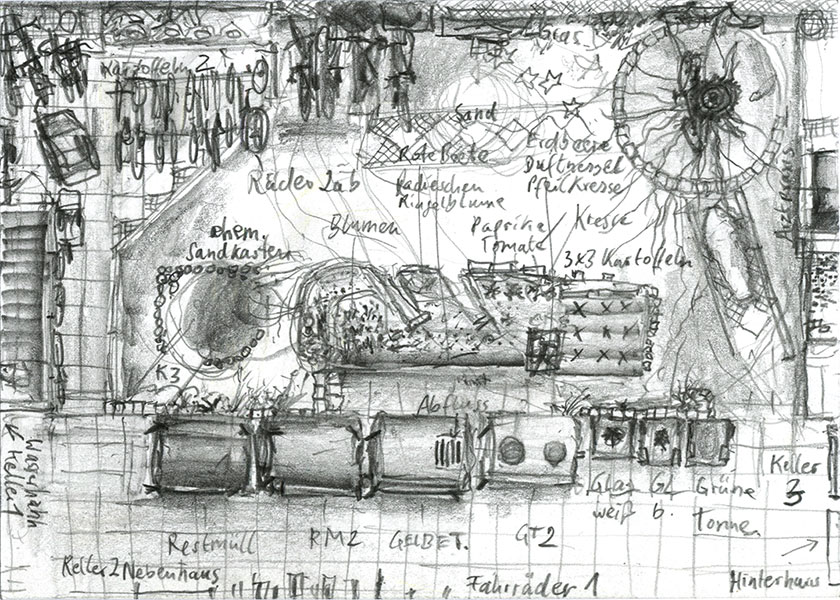 Gras
Kartoffeln 2
Sand
Rote Beete
Erdbeere
Duftnessel
Pfeilkresse
Räder 2ab
Radieschen
Ringelblume
Blumen
Paprika/
Tomate
Kresse
ehem.
Sandkasten
3x3 Kartoffeln
K3
Abfluss
Wasserhahn
Keller 1
Restmüll
RM2
GELBE T.
GT2
Glas
weiß
GL
b.
Grüne
Tonnen
Keller
3
Keller 2 Nebenhaus
Fahrräder 1
Hinterhaus